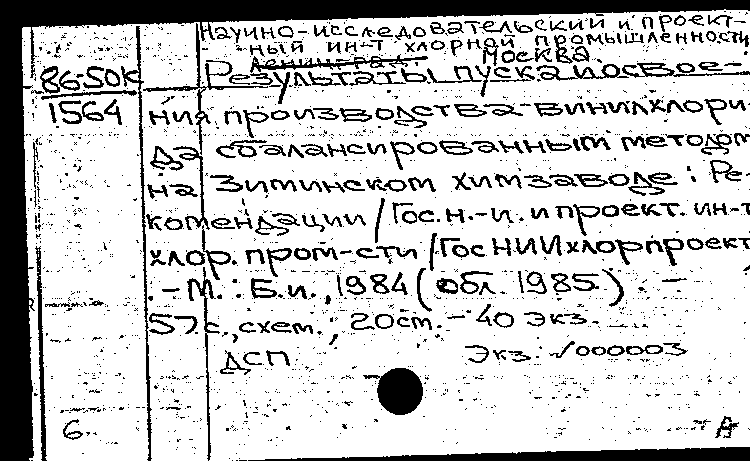 Научно-исследовательский и проект-
ный ин-т хлорной промышленности
Ленинград. Москва.
86-50К Результаты пуска и освое-
1564 ния производства винилхлори
да сбалансированным методом
на Зиминском химзаводе: Ре-
комендации / Гос. н.-и. и проект. ин-т
хлор. пром-сти / ГосНИИхлорпроект
. - М.: Б.и., 1984 (обл. 1985). -
57 с., схем.; 20 ст. - 40 экз.
ДСП Экз. √000003
6 А